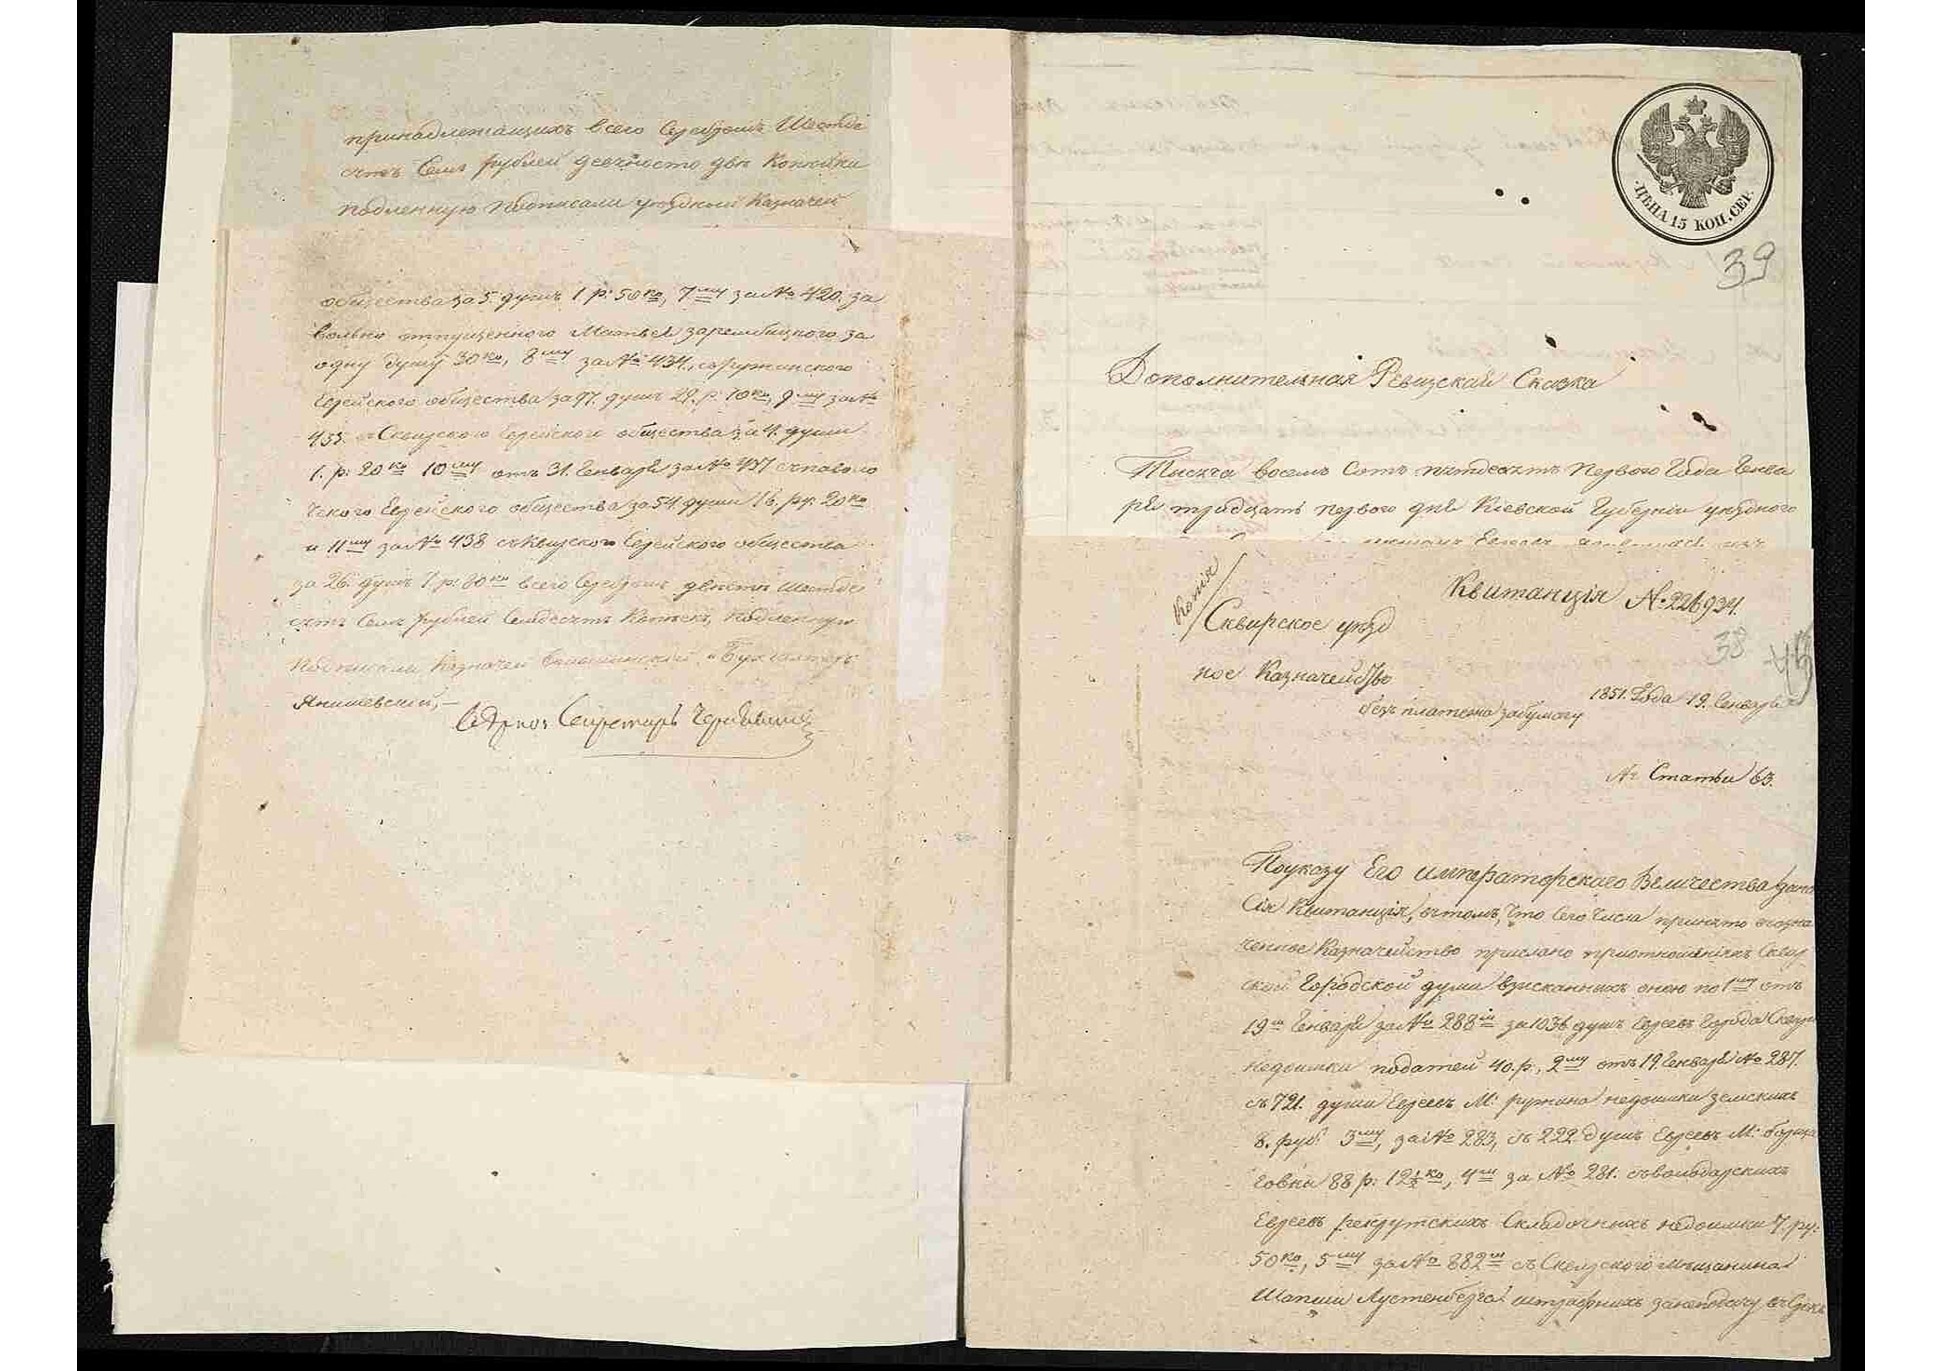 принадлежащихъ всего Серебромъ Шестде
сятъ Семь рублей девяносто две Копейки
подленную подписали уездный Казначей
общества за 5. душъ 1 р: 50 ко, 7му за № 420. за
вольно отпущенного Матвея зарембицкого за
одну душу 30 ко, 8му за № 434., съружинского
Еврейского общества за 97. душъ 29. р: 10 ко, 9му за №
435. съСквирского Еврейского общества за 4. души
1. р: 20 ко 10му отъ 31. Генваря за № 437 съпаволо
чского Еврейского общества за 54. души 16. ру: 20 ко
и 11му за № 438 съ Еврейского общества
за 26. душъ 7. р: 80 ко всего Серебромъ двести шестде
сятъ Семь рублей Семдесятъ Копеек, подленную
подписали Казначей и Бухгалтеръ
Янишевский,—
Секретарь
ЦЕНА 15 КОП. СЕР.
39
Дополнительная Ревизская Сказка
Тисяча восемъ Сотъ пятдесятъ первого Года Генва
ря тридцать первого дня Кіевской Губерніи уездного
Копія
Квитанція №. 226934.
Сквирское уезд
38
ное Казначейство
1851. Года 19. Генваря
безъ платежа забумагу
№ Статьи 63.
Поуказу Его императорского Величества дана
Сія Квитанція, втомъ, что Сего числа принято возна
ченное Казначейство прислано приотношеніяхъ Сквир
ской Городской думы взысканныхъ оною по 1му отъ
19го Генваря за № 288м за 1036 душъ Евреевъ Города Сквиры
недоимки податей 40. р., 2му отъ 19. Генваря № 287.
съ 721. души Евреевъ М. ружина недоимки земскихъ
8. руб: 3му, за № 283, съ 222. душъ Евреевъ М.
говки 88 р: 12½ ко, 4му за № 281. съволодарскихъ
Евреевъ рекрутскихъ Складочныхъ недоимки 7. ру:
50 ко, 5му за № 882м съ Сквирского мещанина
Шапши Лустенберга штрафныхъ занеподачу въСрокъ